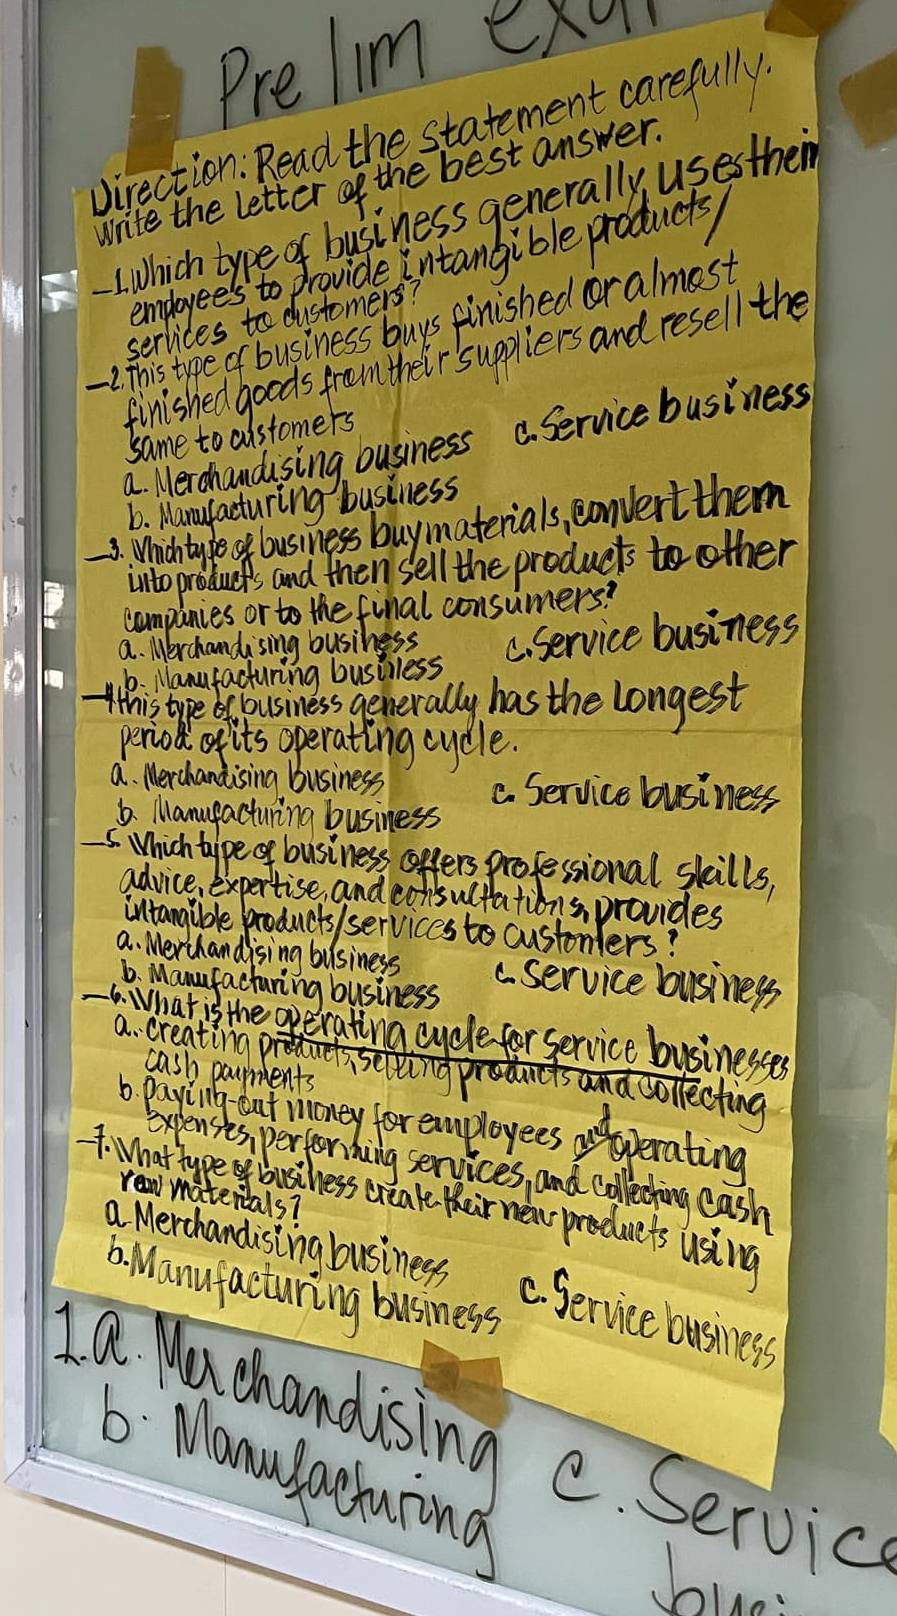 Prelim exa
Direction: Read the statement carefully.
Write the letter of the best answer.
1. Which type of business generally uses their
employees to provide intangible products/
services to customers?
2. This type of business buys finished or almost
finished goods from their suppliers and resell the
same to customers
a. Merchandising business c. Service business
b. Manufacturing business
3. Which type of business buy materials, convert them
into products and then sell the products to other
companies or to the final consumers?
a. Merchandising business c. Service business
b. Manufacturing business
4. this type of business generally has the longest
period of its operating cycle.
a. Merchandising business c. Service business
b. Manufacturing business
5. Which type of business offers professional skills,
advice, expertise, and consultations, provides
intangible products/services to customers?
a. Merchandising business c. Service business
b. Manufacturing business
6. What is the operating cycle for service businesses
a. creating products, selling products and collecting
cash payments
b. paying-out money for employees and operating
expenses, performing services, and collecting cash
7. What type of business create their new products using
raw materials?
a. Merchandising business c. Service business
b. Manufacturing business
1. a. Merchandising c. Service
b. Manufacturing busi